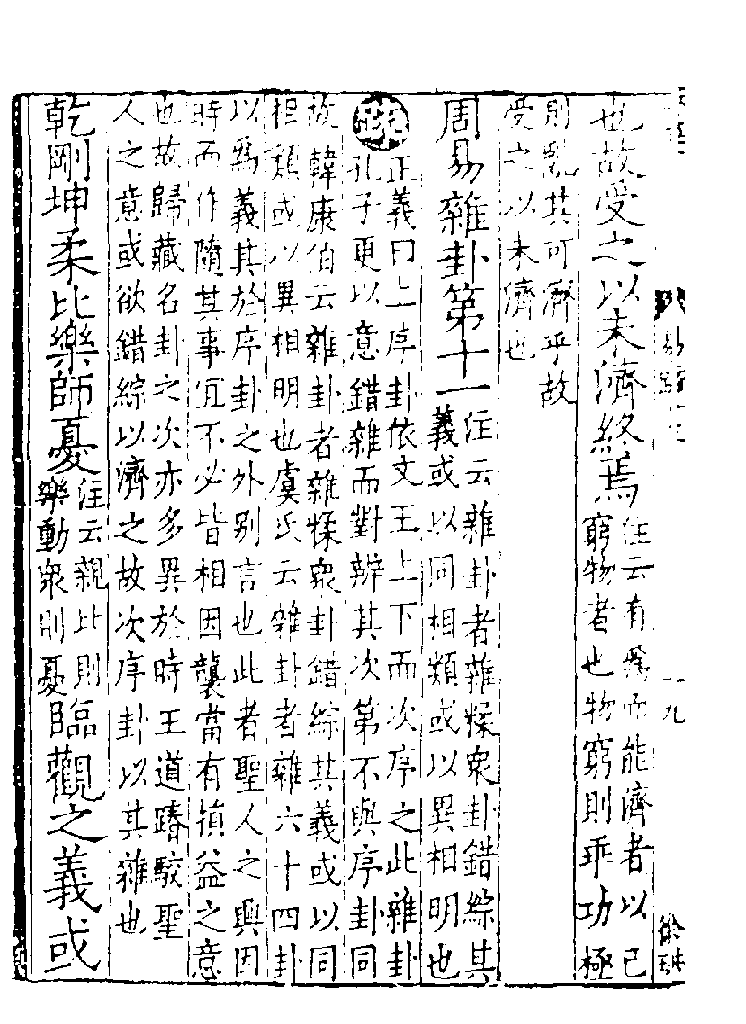 也故受之以未濟終焉
注云有爲而能濟者以已
窮物者也物窮則乖功極
則亂其可濟乎故
受之以未濟也
周易雜卦第十一
注云雜卦者雜糅衆卦錯綜其
義或以同相類或以異相明也
疏
正義曰上序卦依文王上下而次序之此雜卦
孔子更以意錯雜而對辨其次第不與序卦同
故韓康伯云雜卦者雜糅衆卦錯綜其義或以同
相類或以異相明也虞氏云雜卦者雜六十四卦
以爲義其於序卦之外别言也此者聖人之興因
時而作隨其事宜不必皆相因襲當有損益之意
也故歸藏名卦之次亦多異於時王道踳駮聖
人之意或欲錯綜以濟之故次序卦以其雜也
乾剛坤柔比樂師憂
注云親比則
樂動衆則憂
臨觀之義或
十九